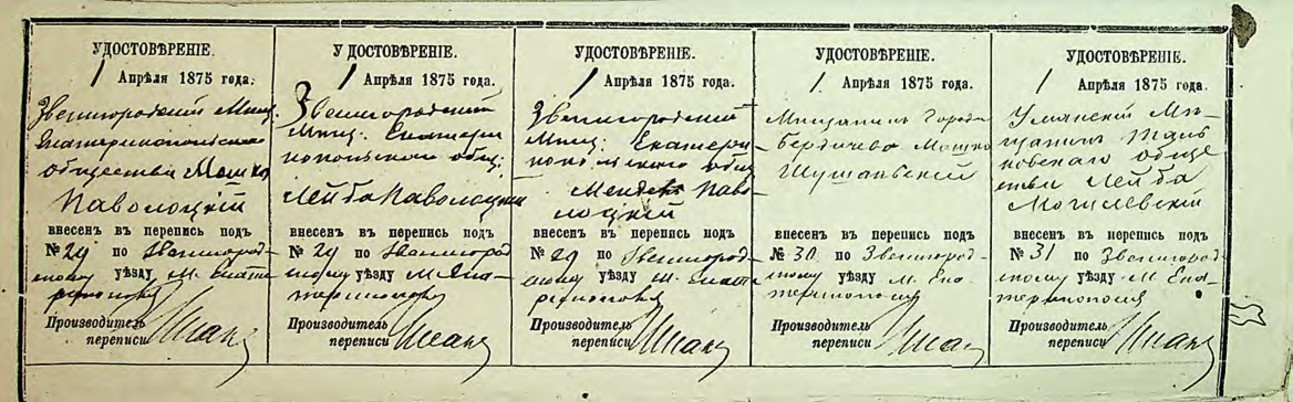 УДОСТОВѢРЕНІЕ.
1 Апрѣля 1875 года.
Звенигородскій Мѣщ.
Екатеринопольскаго
общества Мошко
Паволоцкій
внесенъ въ перепись подъ
№ 29 по Звенигород-
скому уѣзду м. Екате-
ринополя
Производитель
переписи
УДОСТОВѢРЕНІЕ.
1 Апрѣля 1875 года.
Звенигородскій
Мѣщ: Екатери
нопольскаго общ:
Лейба Паволоцкій
внесенъ въ перепись подъ
№ 29 по Звенигород
скому уѣзду м. Ека-
теринополя
Производитель
переписи
УДОСТОВѢРЕНІЕ.
1 Апрѣля 1875 года.
Звенигородскій
Мѣщ: Екатери-
нопольскаго общ
Мендель Паво-
лоцкій
внесенъ въ перепись подъ
№ 29 по Звенигород-
скому уѣзду м. Екате
ринополя
Производитель
переписи
УДОСТОВѢРЕНІЕ.
1 Апрѣля 1875 года.
Мѣщанинъ Города
Бердичева Мошко
внесенъ въ перепись подъ
№ 30 по Звенигород-
скому уѣзду м. Ека-
теринополя
Производитель
переписи
УДОСТОВѢРЕНІЕ.
1 Апрѣля 1875 года.
Уманскій Мѣ-
щанинъ Таль
новскаго обще
ства Лейба
Могилевскій
внесенъ въ перепись подъ
№ 31 по Звенигород-
скому уѣзду м. Ека-
теринополя
Производитель
переписи